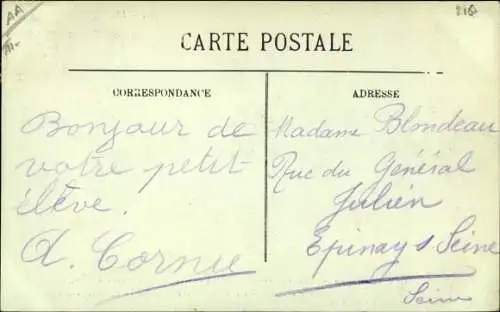 AA
III-
215
CARTE POSTALE
CORRESPONDANCE
Bonjour de
votre petit
élève.
A. Cornu
ADRESSE
Madame Blondeau
Rue du Général
Julien
Epinay s Seine
Seine